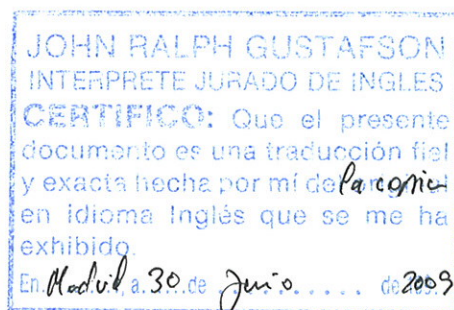 JOHN RALPH GUSTAFSON
INTERPRETE JURADO DE INGLES
CERTIFICO: Que el presente
documento es una traducción fiel
y exacta hecha por mí de la copia
en idioma Inglés que se me ha
exhibido
En Madrid, a 30 de Junio de 2009